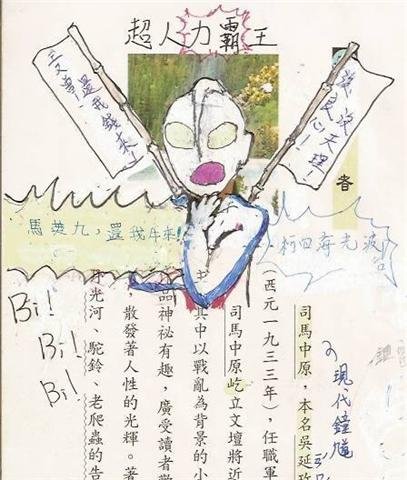 超人力霸王
還我錢來!
沒天理!
良心!
者
馬英九,還我牛來!
光波
Bi!
Bi!
Bi!
現代鐘馗
司馬中原,本名吳延玫
(西元一九三三年),任職軍
司馬中原屹立文壇將近
其中以戰亂為背景的小
品神祕有趣,廣受讀者歡
,散發著人性的光輝。著
光河、駝鈴、老爬蟲的告